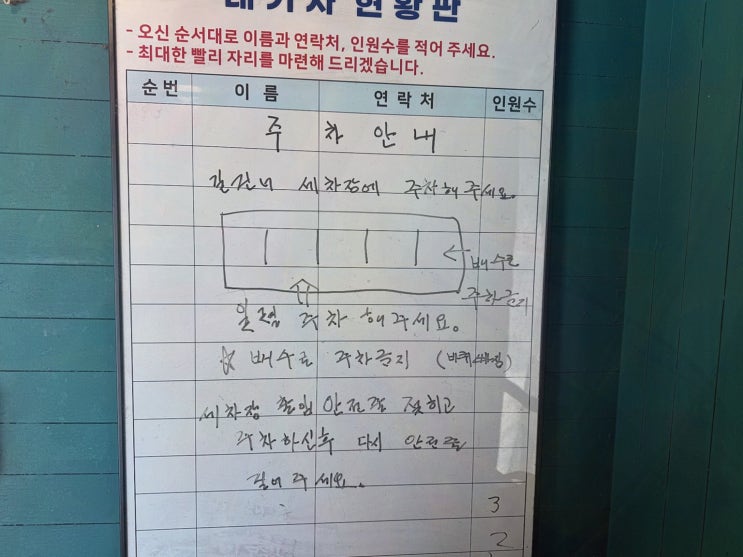 대기자 현황판
- 오신 순서대로 이름과 연락처, 인원수를 적어 주세요.
- 최대한 빨리 자리를 마련해 드리겠습니다.
순번 이름 연락처 인원수
주차안내
길건너 세차장에 주차해주세요.
← 배수로
주차금지
일렬 주차해주세요.
☆ 배수로 주차금지 (바퀴빠짐)
세차장 출입 안전줄 젖히고
주차하신후 다시 안전줄
걸어주세요.
3
2